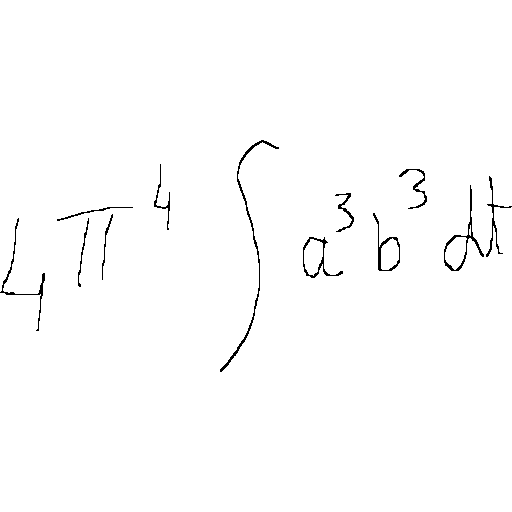 4π⁴ ∫ a³ b³ dt